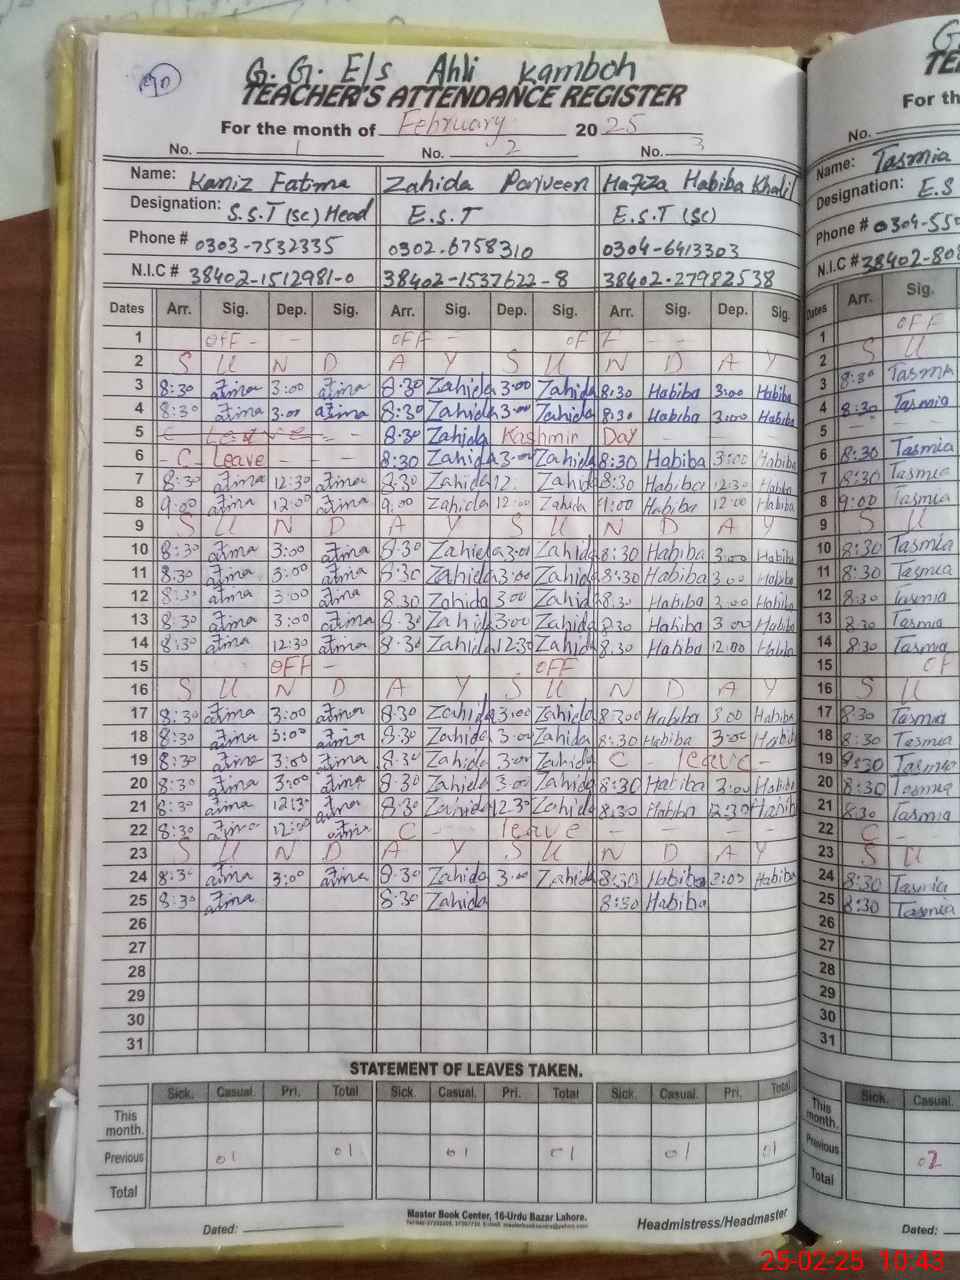 90
G.G. E/s Ahli Kamboh
TEACHER'S ATTENDANCE REGISTER
For the month of February 2025
No. 1 No. 2 No. 3
Name: Kaniz Fatima Zahida Parveen Hafiza Habiba Khalil
Designation: S.S.T (SC) Head E.S.T E.S.T (SC)
Phone # 0303-7532335 0302-6758310 0304-6413303
N.I.C # 38402-1512981-0 38402-1537622-8 38402-27982538
Dates Arr. Sig. Dep. Sig. Arr. Sig. Dep. Sig. Arr. Sig. Dep. Sig.
1 OFF - - OFF - - OFF - - -
2 S U N D A Y S U N D A Y
3 8:30 Fatima 3:00 Fatima 8:30 Zahida 3:00 Zahida 8:30 Habiba 3:00 Habiba
4 8:30 Fatima 3:00 Fatima 8:30 Zahida 3:00 Zahida 8:30 Habiba 3:00 Habiba
5 8:30 Zahida Kashmir Day - - - -
6 - C - Leave - - - 8:30 Zahida 3:00 Zahida 8:30 Habiba 3:00 Habiba
7 8:30 Fatima 12:30 Fatima 8:30 Zahida 12: Zahida 8:30 Habiba 12:30 Habiba
8 9:00 Fatima 12:00 Fatima 9:00 Zahida 12:00 Zahida 9:00 Habiba 12:00 Habiba
9 S U N D A Y S U N D A Y
10 8:30 Fatima 3:00 Fatima 8:30 Zahida 3:00 Zahida 8:30 Habiba 3:00 Habiba
11 8:30 Fatima 3:00 Fatima 8:30 Zahida 3:00 Zahida 8:30 Habiba 3:00 Habiba
12 8:30 Fatima 3:00 Fatima 8:30 Zahida 3:00 Zahida 8:30 Habiba 3:00 Habiba
13 8:30 Fatima 3:00 Fatima 8:30 Zahida 3:00 Zahida 8:30 Habiba 3:00 Habiba
14 8:30 Fatima 12:30 Fatima 8:30 Zahida 12:30 Zahida 8:30 Habiba 12:00 Habiba
15 OFF - OFF
16 S U N D A Y S U N D A Y
17 8:30 Fatima 3:00 Fatima 8:30 Zahida 3:00 Zahida 8:300 Habiba 3:00 Habiba
18 8:30 Fatima 3:00 Fatima 8:30 Zahida 3:00 Zahida 8:30 Habiba 3:00 Habiba
19 8:30 Fatima 3:00 Fatima 8:30 Zahida 3:00 Zahida C - leave -
20 8:30 Fatima 3:00 Fatima 8:30 Zahida 3:00 Zahida 8:30 Habiba 3:00 Habiba
21 8:30 Fatima 12:30 Fatima 8:30 Zahida 12:30 Zahida 8:30 Habiba 12:30 Habiba
22 8:30 Fatima 12:00 Fatima C - leave - - - -
23 S U N D A Y S U N D A Y
24 8:30 Fatima 3:00 Fatima 8:30 Zahida 3:00 Zahida 8:30 Habiba 3:00 Habiba
25 8:30 Fatima 8:30 Zahida 8:30 Habiba
26
27
28
29
30
31
STATEMENT OF LEAVES TAKEN.
Sick. Casual. Pri. Total Sick. Casual. Pri. Total Sick. Casual. Pri. Total
This month.
Previous 01 01 01 01 01 01
Total
Master Book Center, 16-Urdu Bazar Lahore.
Dated: Headmistress/Headmaster
G.
TE
For th
No.
Name: Tasmia
Designation: E.S
Phone # 0304-550
N.I.C # 38402-808
Arr. Sig.
1 OFF
2 S U
3 8:30 Tasmia
4 8:30 Tasmia
5 - -
6 8:30 Tasmia
7 8:30 Tasmia
8 9:00 Tasmia
9 S U
10 8:30 Tasmia
11 8:30 Tasmia
12 8:30 Tasmia
13 8:30 Tasmia
14 8:30 Tasmia
15 OF
16 S U
17 8:30 Tasmia
18 8:30 Tasmia
19 8:30 Tasmia
20 8:30 Tasmia
21 8:30 Tasmia
22 C -
23 S U
24 8:30 Tasmia
25 8:30 Tasmia
26
27
28
29
30
31
Sick. Casual.
This month.
Previous 02
Total
Dated:
25-02-25 10:43